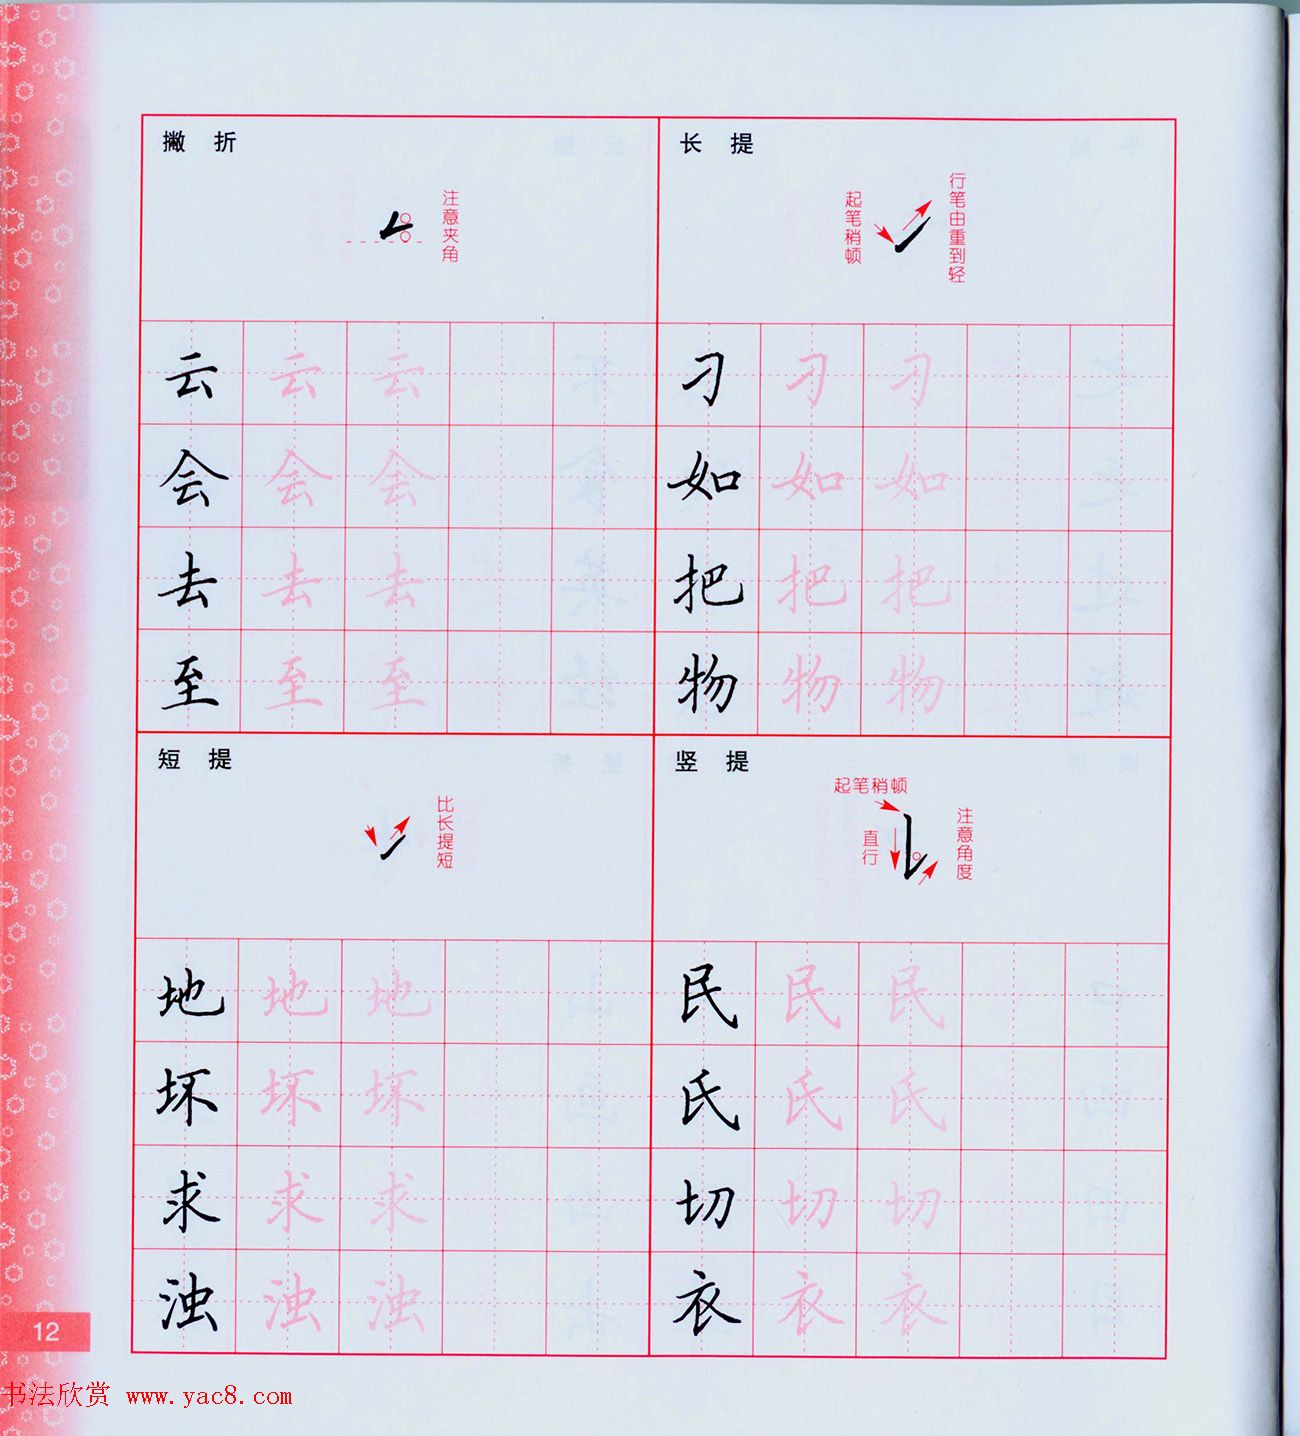 撇折
注意夹角
云云云
会会会
去去去
至至至
长提
起笔稍顿
行笔由重到轻
刁刁刁
如如如
把把把
物物物
短提
比长提短
地地地
坏坏坏
求求求
浊浊浊
竖提
起笔稍顿
直行
注意角度
民民民
氏氏氏
切切切
衣衣衣
12
书法欣赏 www.yac8.com